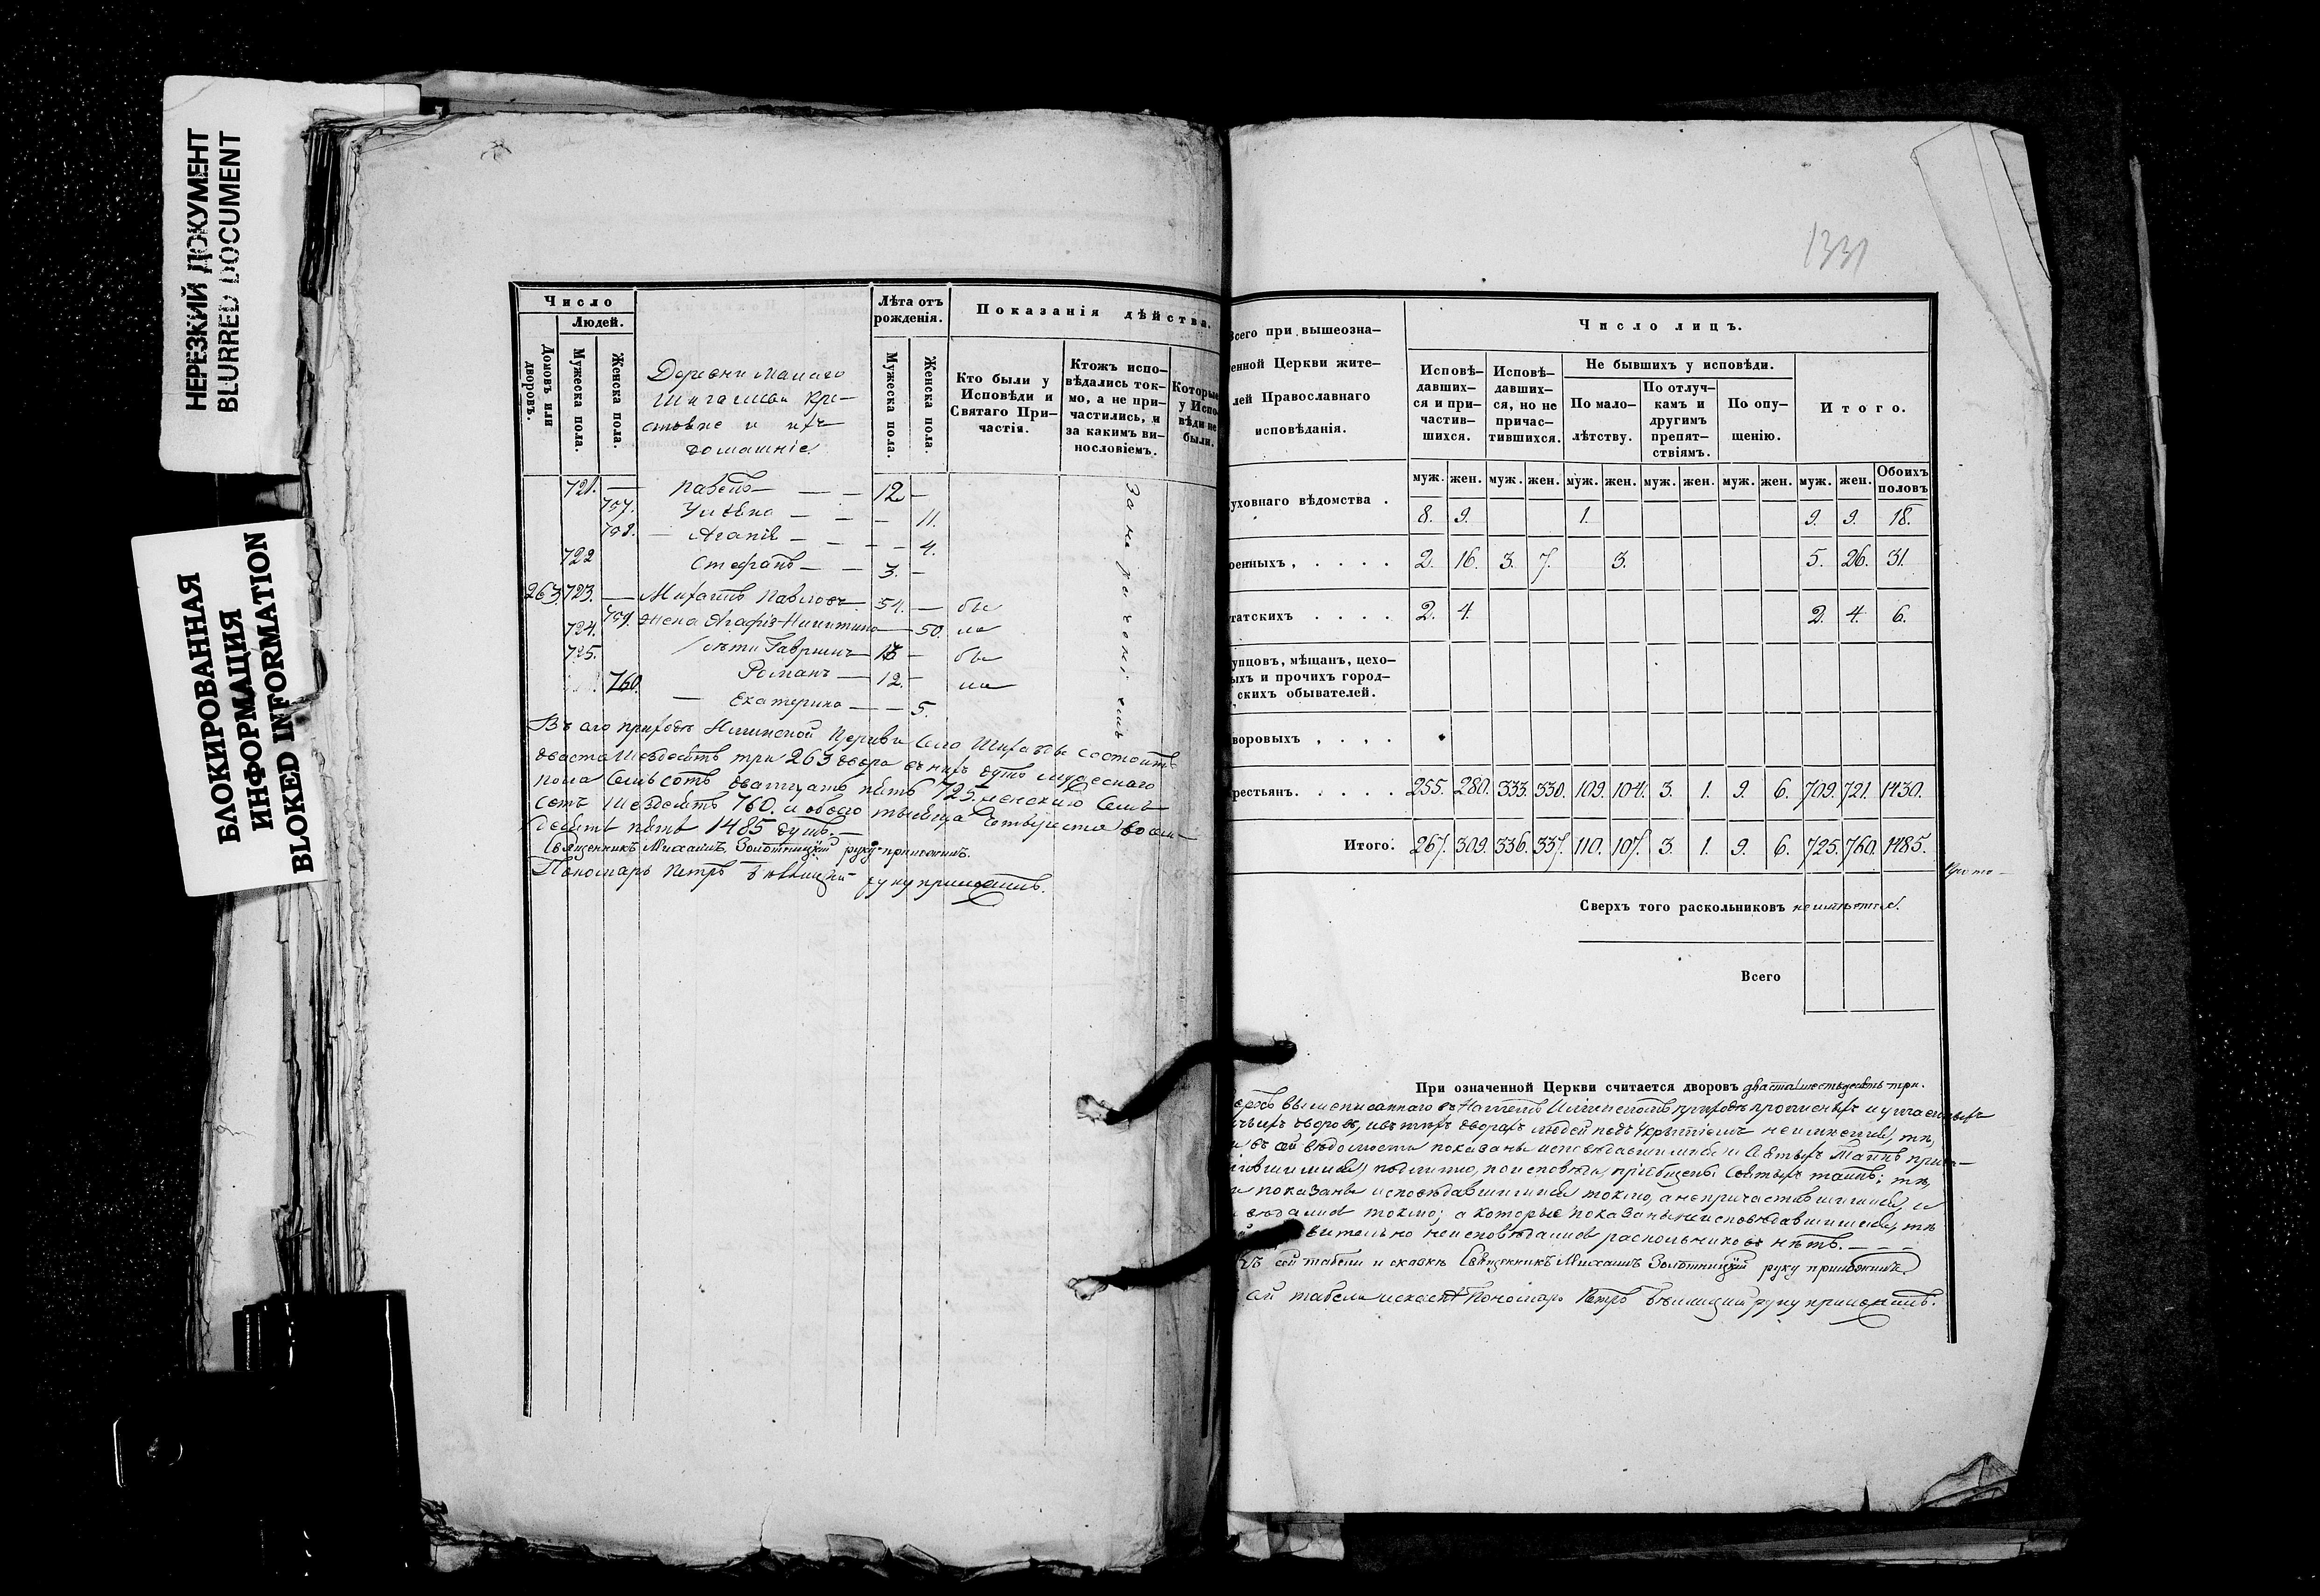 НЕРЕЗКИЙ ДОКУМЕНТ
BLURRED DOCUMENT
БЛОКИРОВАННАЯ
ИНФОРМАЦИЯ
BLOKED INFORMATION
Число
Людей.
Домовъ или дворовъ.
Мужеска пола.
Женска пола.
Деревни Малаго
кре-
стьяне и ихъ
домашніе
Лѣта отъ рожденія.
Мужеска пола.
Женска пола.
Показанія дѣйства.
Кто были у Исповѣди и Святаго Причастія.
Ктожъ испо-вѣдались ток-мо, а не при-частились, и за какимъ ви-нословіемъ.
Которые у Испо-вѣди не были.
721. — Павелъ — — — 12 —
Ульяна — — — 11.
708. — Агапія — — — — 4.
722 Стефанъ — — 3. —
263. 723. — Михаилъ Павловъ 51. — бы
709. жена Агафія Никитина — 50. ла
724. дѣти Гавриилъ — — бы
725. Романъ — 12. — ла
760. — Екатерина — — 5.
Въ приходѣ Церкви Села состоитъ
двѣста шездесятъ три 263 двора въ нихъ душъ мужескаго
пола семьсотъ дватцать пять 725. женскаго семь
сотъ шездесятъ 760. и обоего тысяща четыреста восем-
десятъ пять 1485 душъ. —
Священникъ Михаилъ Золотницкій руку приложилъ.
Пономарь Петръ руку приложилъ.
1331
Всего при вышеозна-
енной Церкви жите-
лей Православнаго
исповѣданія.
Число лицъ.
Исповѣ-давших-ся и при-частив-шихся.
Исповѣ-давших-ся, но не причас-тившихся.
Не бывшихъ у исповѣди.
По мало-лѣтству.
По отлуч-камъ и другимъ препят-ствіямъ.
По опу-щенію.
Итого.
муж. жен. муж. жен. муж. жен. муж. жен. муж. жен. муж. жен. Обоихъ половъ
уховнаго вѣдомства . 8. 9. 1. 9. 9. 18.
оенныхъ , . . . . 2. 16. 3. 7. 3. 5. 26. 31.
татскихъ . . . . 2. 4. 2. 4. 6.
упцовъ, мѣщанъ, цехо-
ыхъ и прочихъ город-
скихъ обывателей.
воровыхъ , . , .
рестьянъ. . . . . 255. 280. 333. 330. 109. 104. 3. 1. 9. 6. 709. 721. 1430.
Итого: 267. 309. 336. 337. 110. 107. 3. 1. 9. 6. 725. 760. 1485.
Сверхъ того раскольниковъ неимѣется.
Всего
При означенной Церкви считается дворовъ двѣста шестьдесятъ три.
вышеписаннаго въ приходѣ
дворовъ, и въ тѣхъ дворахъ людей неимѣется, тѣ,
въ сей вѣдомости показаны исповѣдавшимися и Святыхъ Таинъ
по исповѣди, приобщены Святыхъ таинъ; тѣ,
показаны исповѣдавшимися токмо, а непричастившимися,
токмо; а которые показаны неисповѣдавшимися, тѣ
неисповѣдались раскольниковъ нѣтъ. — — —
Къ сей табели и сказкѣ Священникъ Михаилъ Золотницкій руку приложилъ.
сей табели и сказкѣ Пономарь Петръ руку приложилъ.